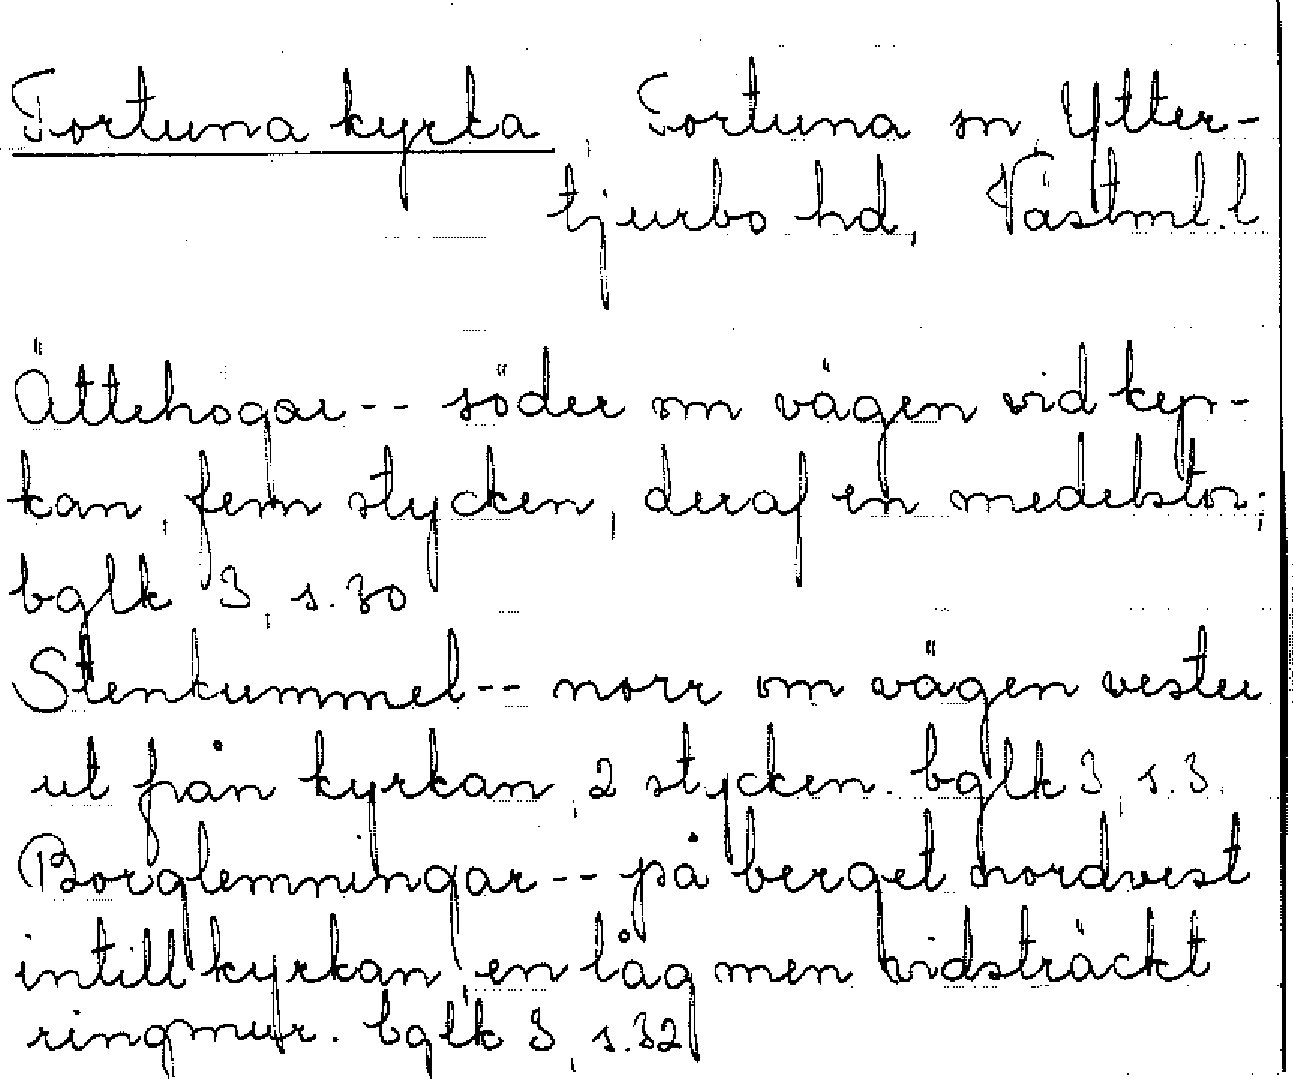 Tortuna kyrka, Tortuna sn, Ytter-
tjurbo hd, Västml. l
Ättehögar -- söder om vägen vid kyr-
kan, fem stycken, deraf en medelstor;
bglk 3, s. 30
Stenkummel -- norr om vägen vester
ut från kyrkan, 2 stycken. bglk 3, s. 3.
Borglemningar -- på berget nordvest
intill kyrkan en låg men vidsträckt
ringmur. bglk 3, s. 32